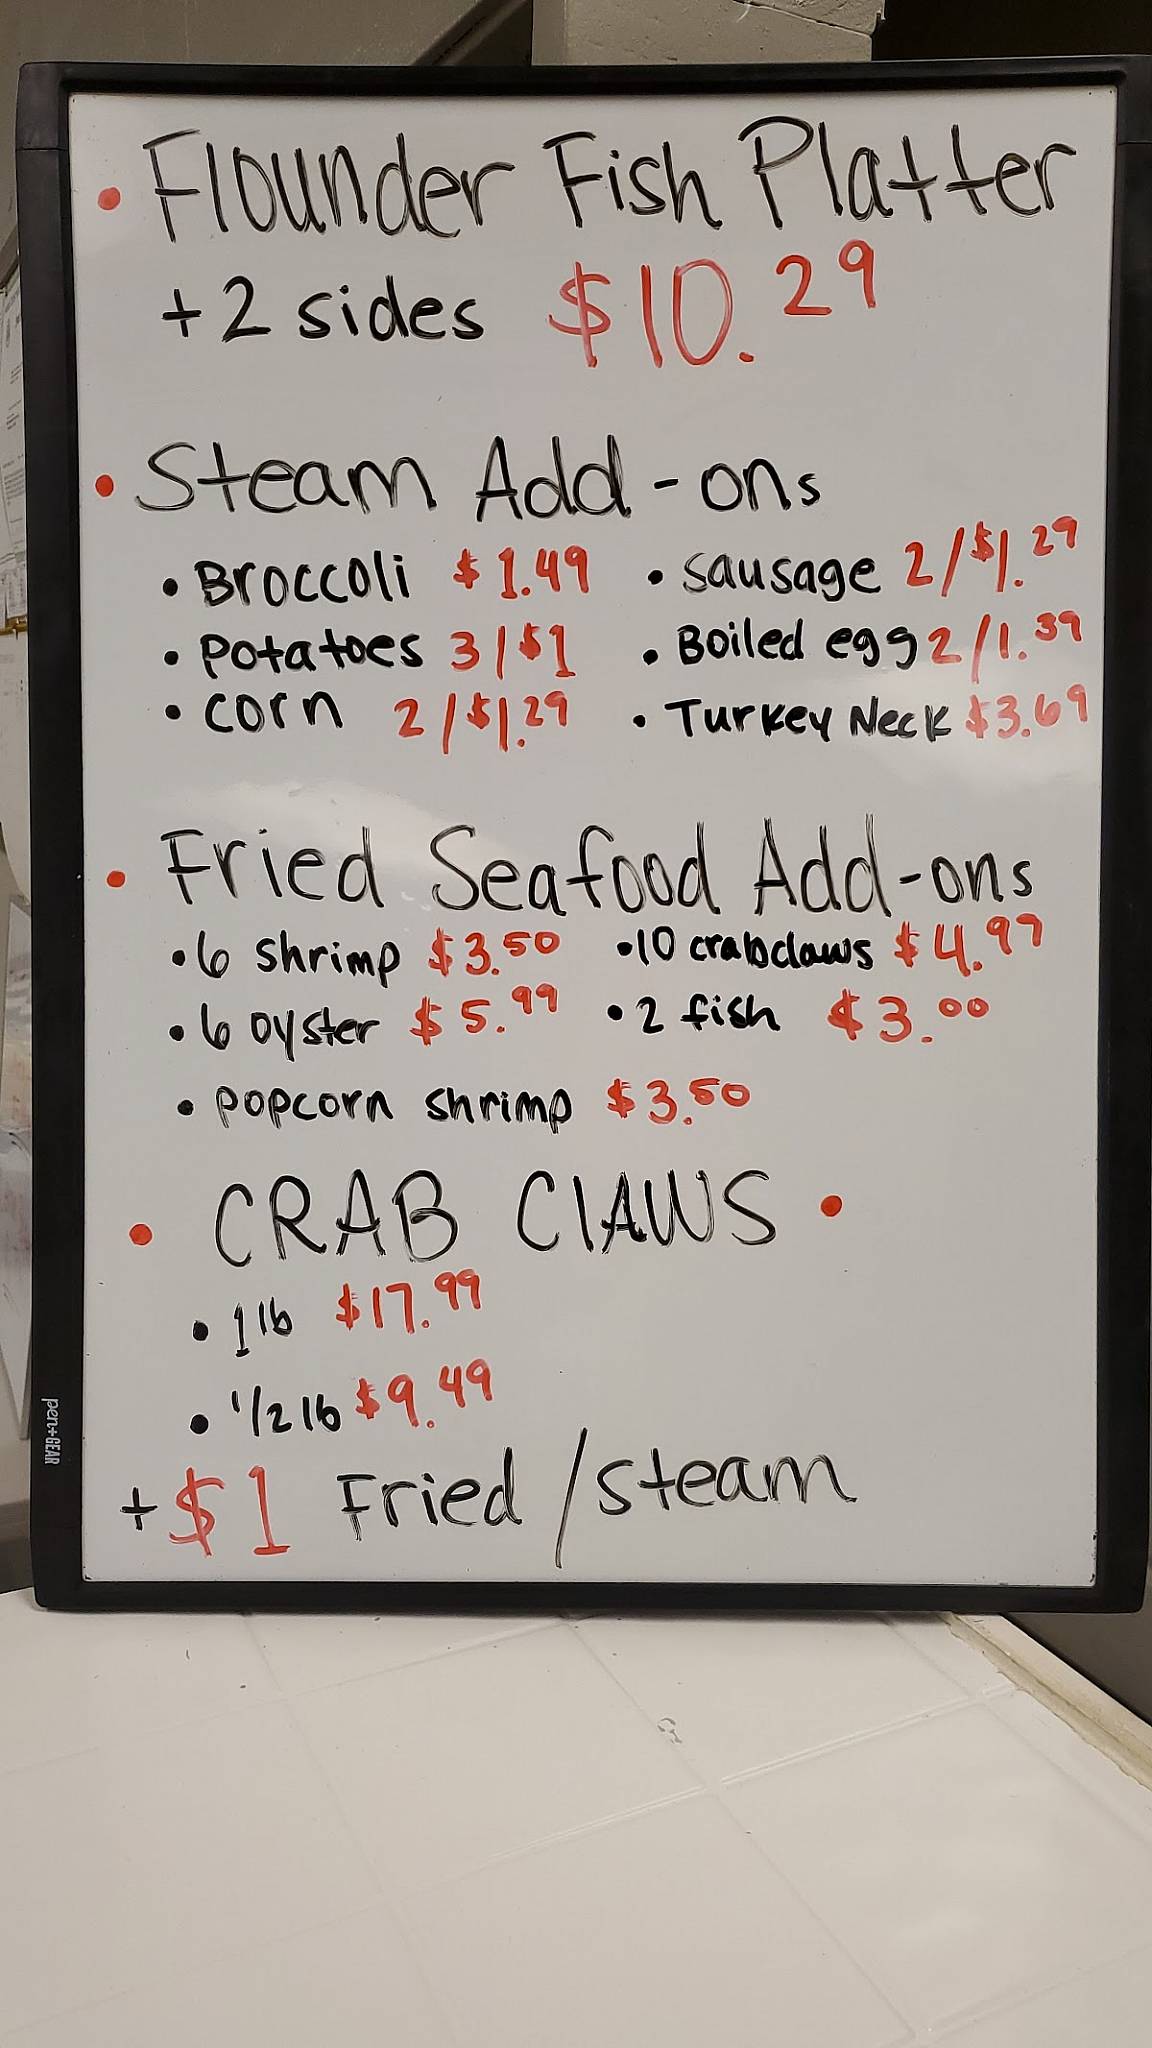 • Flounder Fish Platter
+ 2 sides $10.29
• Steam Add-ons
• Broccoli $1.49
• Potatoes 3/$1
• corn 2/$1.29
• sausage 2/$1.29
• Boiled egg 2/1.39
• Turkey Neck $3.69
• Fried Seafood Add-ons
• 6 shrimp $3.50
• 6 oyster $5.99
• 10 crabclaws $4.99
• 2 fish $3.00
• popcorn shrimp $3.50
• CRAB ClAWS •
• 1 lb $17.99
• 1/2 lb $9.49
+ $1 Fried / steam
pen+GEAR